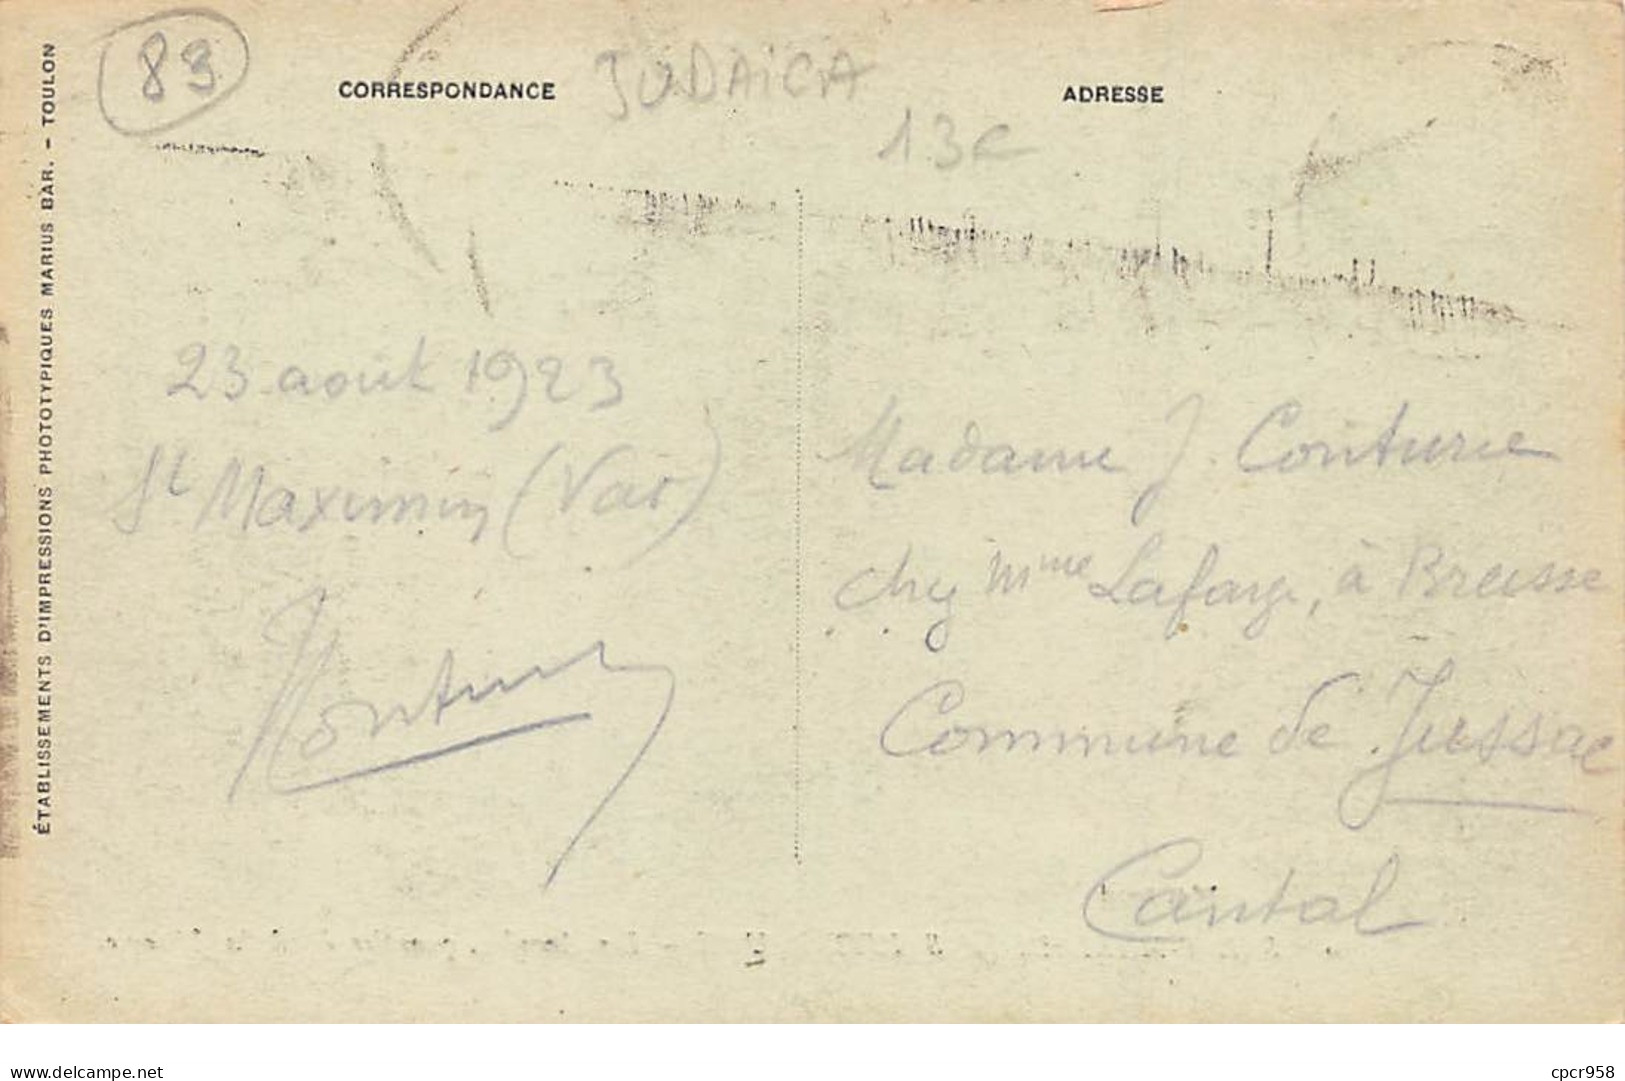 83
JUDAÏCA
13€
CORRESPONDANCE
ADRESSE
ÉTABLISSEMENTS D'IMPRESSIONS PHOTOTYPIQUES MARIUS BAR. - TOULON
23 août 1923
St Maximin (Var)
Madame J. Couturie
chez Mme Lafarge, à
Commune de Jussac
Cantal
www.delcampe.net
cpcr958